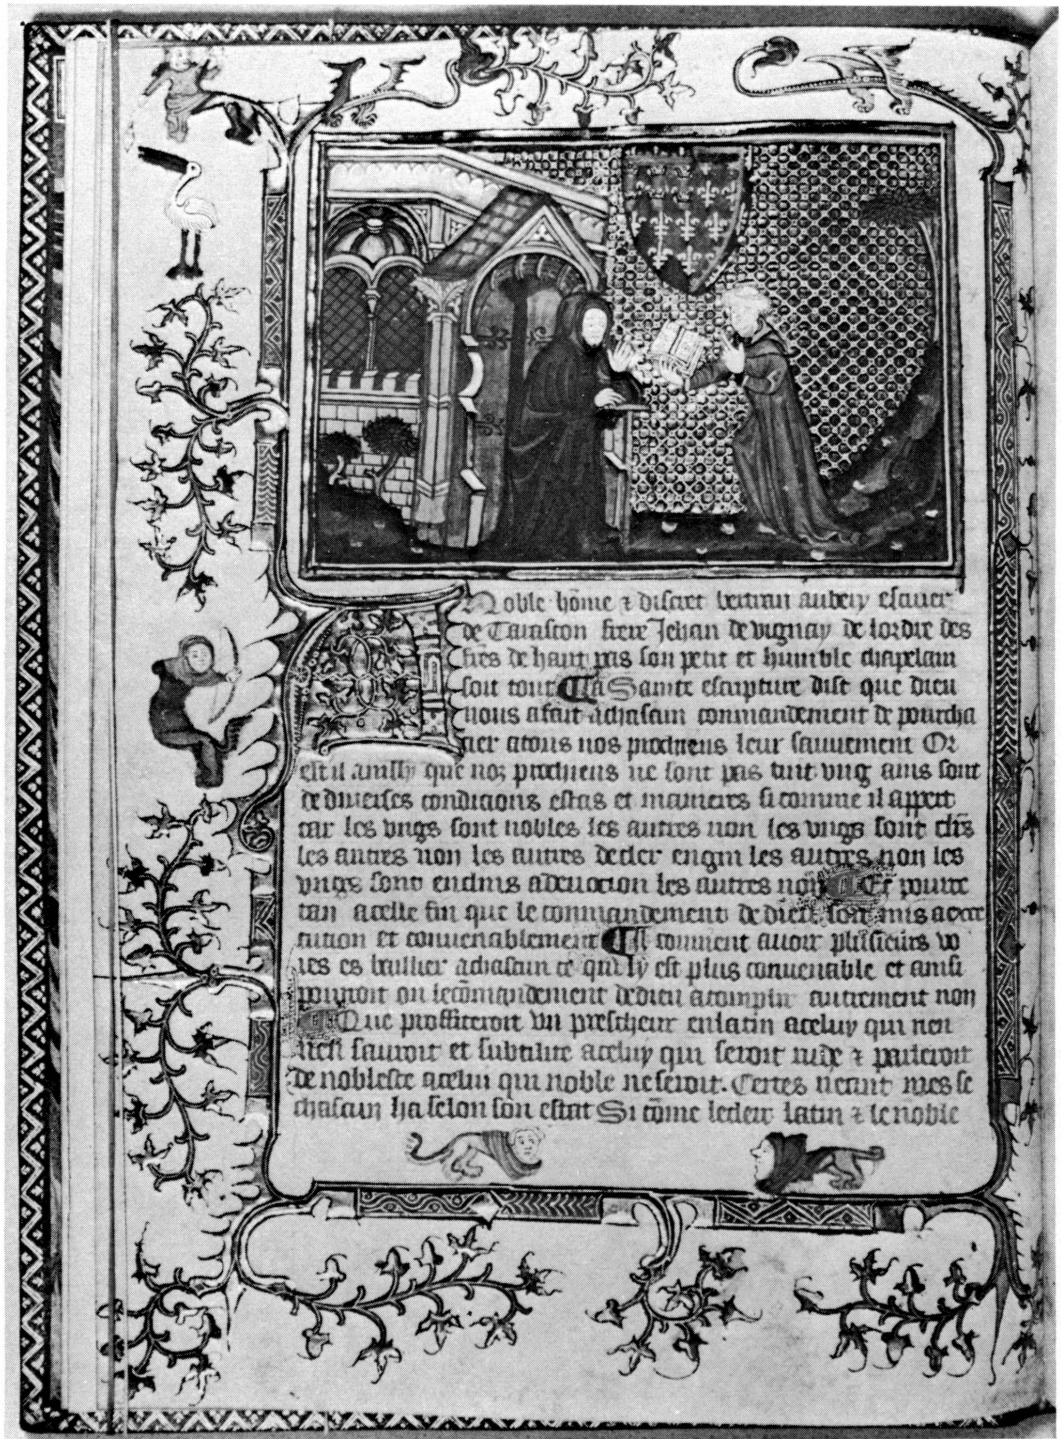 Noble hōme ⁊ discret bertran aubery escuier
de Tarascon frere Jehan de vignay de lordre des
fr̄es de haut pas son petit et humble chapelain
soit tout La Sainte escripture dist que dieu
nous a fait a chascun commandement de pourcha
cier a tous nos prochiens leur sauuement Or
est il ainssy que noz prochiens ne sont pas tout vng ains sont
de diuerses condicions estas et manieres si comme il appert
car les vngs sont nobles les autres non les vngs sont clers
les autres non les autres de cler engin les autres non les
vngs sont enclins a deuocion les autres non Et pource
que le commandement de dieu soit mis a exe
cucion et conuenablement Il conuient auoir plusieurs vo
ies es baillier a chascun ce qui ly est plus conuenable et ainsi
pourroit on le cōmandement de dieu acomplir autrement non
Que proffiteroit vn prescheur en latin a celuy qui rien
nen sauroit et subtilite a celuy qui seroit rude ⁊ parleroit
de noblesce a celui qui noble ne seroit. Certes neant mes se
chascun ha selon son estat Si cōme le clerc latin ⁊ le noble